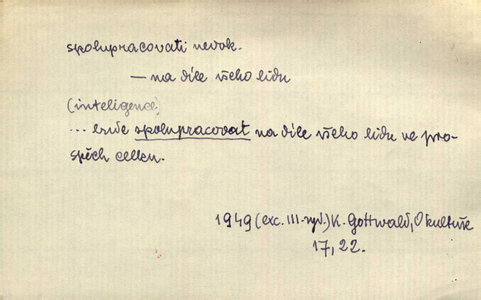 spolupracovati nedok.
— na díle všeho lidu
(inteligence)
... bude spolupracovat na díle všeho lidu ve pro-
spěch celku.
1949 (exc. III. vyd.) K. Gottwald, O kultuře
17, 22.